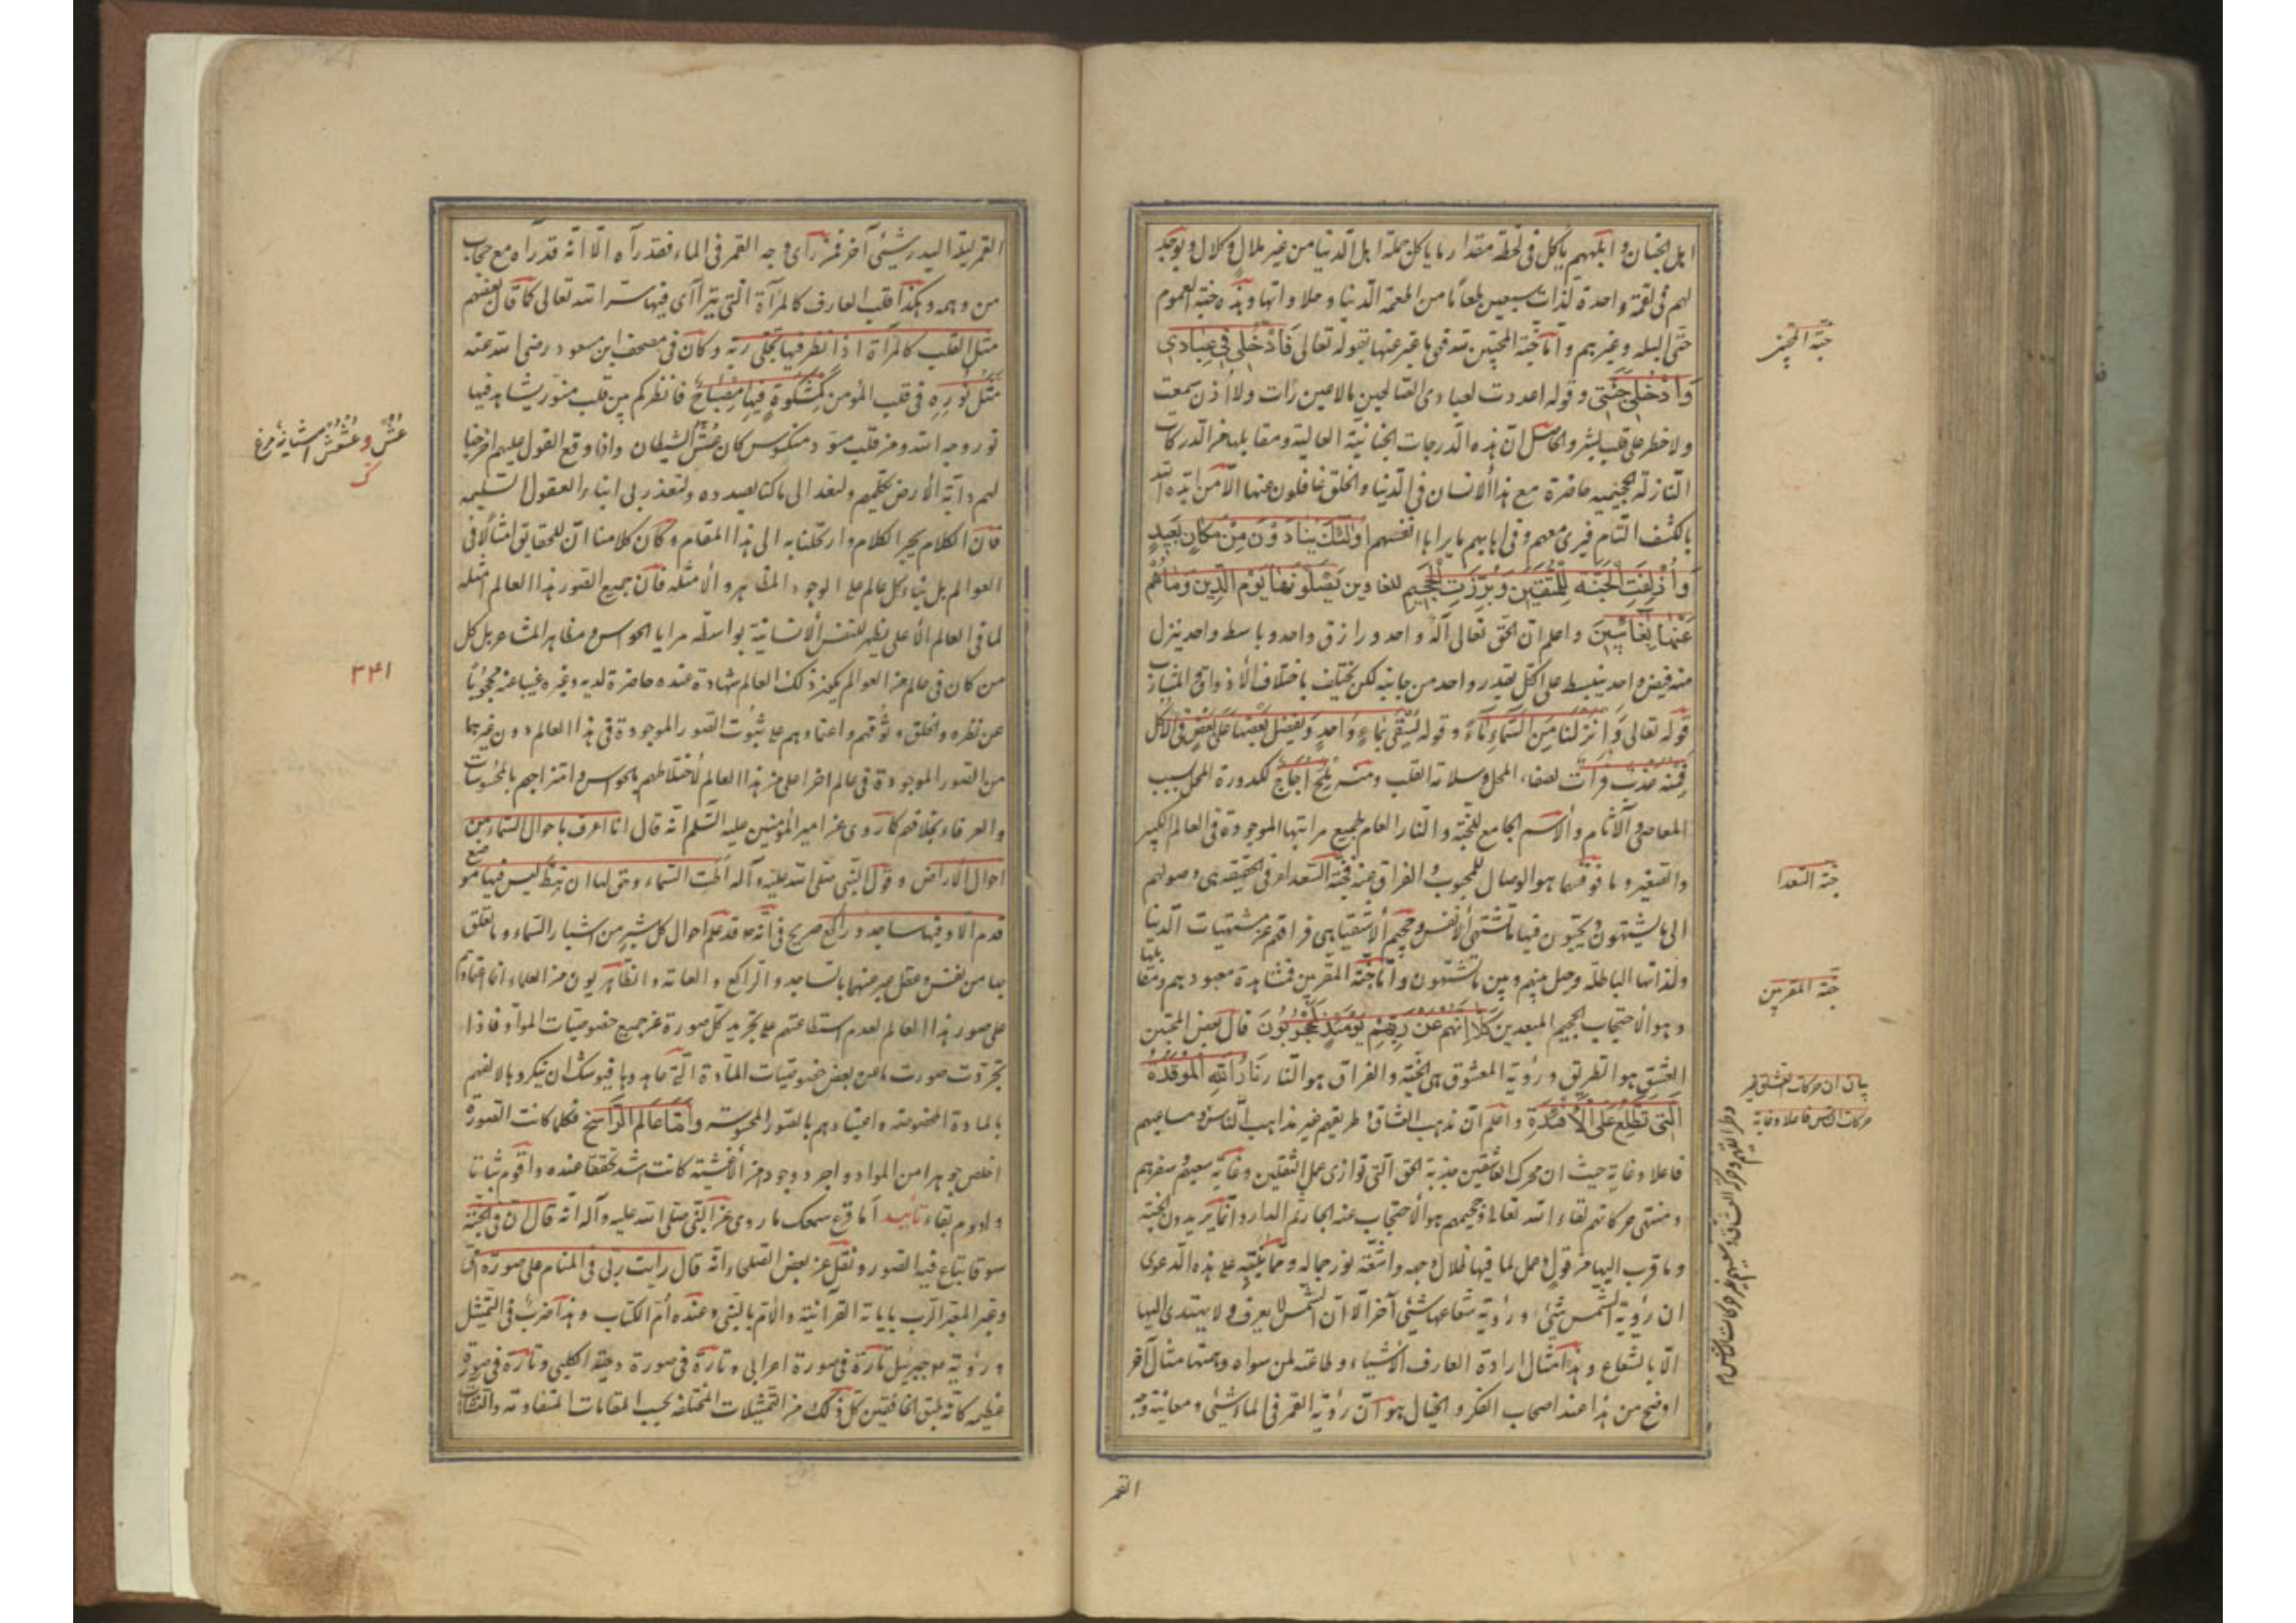 اهل الجنان و ابلههم يأكل فى لحظة مقدار ما يأكل جملة اهل الدنيا من غير ملال و كلال و يوجد
لهم فى لقمة واحدة لذات سبعين طعاما من اطعمة الدنيا و حلاواتها و هذه جنة العموم
حتى البله و غيرهم و اما جنة المحبين فهى ما عبر عنها بقوله تعالى فَادْخُلِي فِي عِبَادِي
وَادْخُلِي جَنَّتِي و قوله اعددت لعبادى الصالحين ما لا عين رأت ولا اذن سمعت
ولا خطر على قلب بشر و الحاصل ان هذه الدرجات الجنانية العالية و مقابلها من الدركات
النازلة الجحيمية حاضرة مع هذا الانسان فى الدنيا و الخلق غافلون عنها الا من ايده الله
بالكشف التام فيرى معهم و فى اهابهم ما يراها انفسهم أُولَئِكَ يُنَادَوْنَ مِنْ مَكَانٍ بَعِيدٍ
وَأُزْلِفَتِ الْجَنَّةُ لِلْمُتَّقِينَ وَبُرِّزَتِ الْجَحِيمُ للغاوين يَصْلَوْنَهَا يَوْمَ الدِّينِ وَمَا هُمْ
عَنْهَا بِغَائِبِينَ و اعلم ان الحق تعالى اله واحد و رازق واحد و باسط واحد ينزل
منه فيض واحد ينبسط على الكل بقدر واحد من جانبه لكن يختلف باختلاف الاذواق
قوله تعالى وَأَنْزَلْنَا مِنَ السَّمَاءِ مَاءً و قوله يُسْقَى بِمَاءٍ وَاحِدٍ وَنُفَضِّلُ بَعْضَهَا عَلَى بَعْضٍ فِي الْأُكُلِ
فمنه عذب فرات لصفاء المحل و سلامة القلب و منه ملح اجاج لكدورة المحل بسبب
المعاصى و الآثام و الاسم الجامع للجنة و النار العام لجميع مراتبها الموجودة فى العالم الكبير
والصغير و ما فوقهما هو الوصال للمحبوب و الفراق عنه فجنة السعداء فى الحقيقة هى وصولهم
الى ما يشتهون و يحبون فيها ما تشتهى الانفس و جحيم الاشقياء هى فراقهم عن مشتهيات الدنيا
ولذاتها الباطلة و حيل بينهم و بين ما يشتهون و اما جنة المقربين فمشاهدة معبودهم و مقابلها
و هو الاحتجاب الجحيم المبعدين كَلَّا إِنَّهُمْ عَنْ رَبِّهِمْ يَوْمَئِذٍ لَمَحْجُوبُونَ قال بعض المحبين
العشق هو الطريق و رؤية المعشوق هى الجنة و الفراق هو النار نَارُ اللَّهِ الْمُوقَدَةُ
الَّتِي تَطَّلِعُ عَلَى الْأَفْئِدَةِ و اعلم ان مذهب العشاق و طريقهم غير مذاهب الناس و مساعيهم
فاعلا و غاية حيث ان محرك العاشقين جذبة الحق التى توازى عمل الثقلين و غاية سعيهم و سفرهم
و منتهى حركاتهم لقاء الله تعالى و جحيمهم هو الاحتجاب عنه الجار ثم الدار و انما يريدون الجنة
و ما قرب اليها من قول و عمل لما فيها ظلال وجه و اشعة نور جماله و مما ينبه على هذه الدعوى
ان رؤية الشمس شىء و رؤية شعاعها شىء آخر الا ان الشمس لا يعرف و لا يهتدى اليها
الا بالشعاع و هذا مثال ارادة العارف الاشياء و طاعته لمن سواه و ههنا مثال آخر
اوضح من هذا عند اصحاب الفكر و الخيال هو ان رؤية القمر فى الماء شىء و معاينة وجه
القمر
جنة المحبين
جنة السعدا
جنة المقربين
بيان ان حركات العشاق غير
حركات الناس فاعلا و غاية
القمر ليلة البدر شىء آخر فمن رأى وجه القمر فى الماء فقد رآه الا انه قد رآه مع حجاب
من وهمه و هكذا قلب العارف كالمرآة التى يتراآى فيها سر الله تعالى كما قال بعضهم
مثل القلب كالمرآة اذا نظر فيها تجلى ربه و كان فى مصحف ابن مسعود رضى الله عنه
مَثَلُ نُورِهِ فى قلب المؤمن كَمِشْكَوةٍ فِيهَا مِصْبَاحٌ فانظر كم من قلب منور يشاهد فيها
نور وجه الله و من قلب مسود منكوس كان عش الشيطان واذا وقع القول عليهم اخرجنا
لهم دابة الارض تكلمهم ولنعد الى ما كنا بصدده ولنعتذر بى ابناء العقول السليمة
فان الكلام يجر الكلام و ارتحلنا به الى هذا المقام و كان كلامنا ان للحقايق امثالا فى
العوالم بل بناء كل عالم على الوجود المظاهر و الامثلة فان جميع الصور هذا العالم امثلة
لما فى العالم الاعلى يظهر للنفس الانسانية بواسطة مرايا الحواس و مظاهر المشاعر بل كل
من كان فى عالم من العوالم يكون ذلك العالم شهادة عنده حاضرة لديه و غيره غيبا عنه محجوبا
عن نظره و الخلق وثوقهم و اعتمادهم على ثبوت الصور الموجودة فى هذا العالم دون غيرها
من الصور الموجودة فى عالم اخر اعلى من هذا العالم لاختلاطهم بالحواس و امتزاجهم بالمحسوسات
والعرفاء بخلافهم كما روى عن امير المؤمنين عليه السلم انه قال انا اعرف باحوال السماء من
احوال الارض و قول النبى صلى الله عليه و آله اطت السماء و حق لها ان تئط ليس فيها موضع
قدم الا و فيها ساجد و راكع صريح فى انه ص قد علم احوال كل شبر من اشبار السماء و ما تعلق
بها من نفس و عقل عبر عنهما بالساجد و الراكع و العامة و الظاهريون من العلماء انما اعتمادهم
على صور هذا العالم لعدم استطاعتهم على تجريد كل صورة عن جميع خصوصيات المواد فاذا
تجردت صورت ما عن بعض خصوصيات المادة التى عاهدوها فيوشك ان ينكروها لالفهم
بالمادة المخصوصة و اعتيادهم بالصور المحسوسة و اما عالم الراسخ فكلما كانت الصورة
اخلص جوهرا من المواد و اجرد وجودا من الاغشية كانت اشد تحققا عنده و اقوم ثباتا
و ادوم بقاء تأييد أما قرع سمعك ما روى عن النبى صلى الله عليه و آله انه قال ان فى الجنة
سوقا يباع فيه الصور و نقل عن بعض الصلحاء انه قال رأيت ربى فى المنام على صورة امى
و عبر المعبر الرب بايات القرآنية و الام بالنبى و عنده ام الكتاب و هذا ضرب فى التمثيل
و رؤيته ص جبرئيل تارة فى صورة اعرابى و تارة فى صورة دحية الكلبى و تارة فى صورة
عظيمة كانه طبق الخافقين كل ذلك من التمثيلات المختلفة بحسب المقامات المتفاوتة و النشآت
عش و عشش آشيانه مرغ
كر
٣٤١